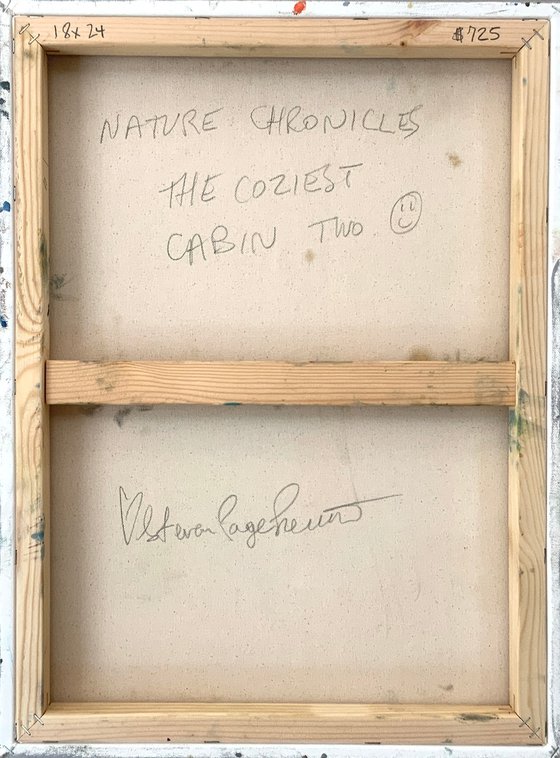 18x24 $725
NATURE CHRONICLES
THE COZIEST
CABIN TWO
Steven Page